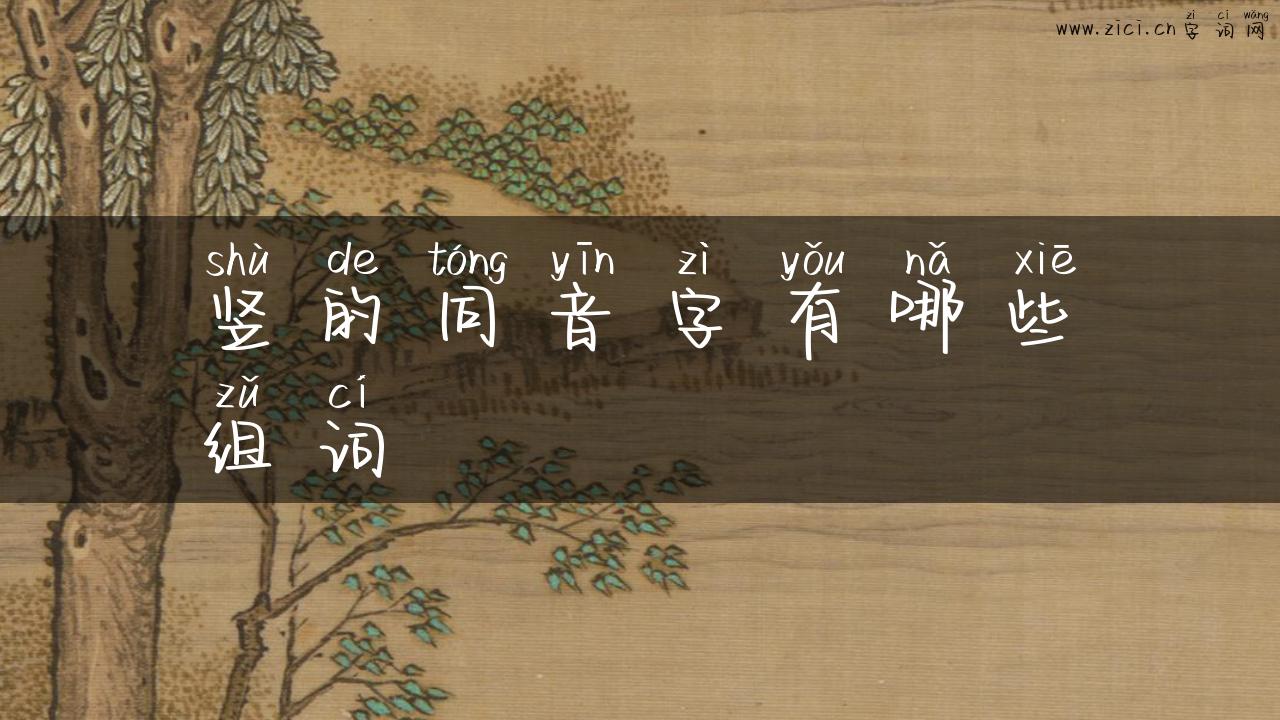 zì cí wǎng
www.zici.cn 字 词 网
shù de tóng yīn zì yǒu nǎ xiē
竖 的 同 音 字 有 哪 些
zǔ cí
组 词